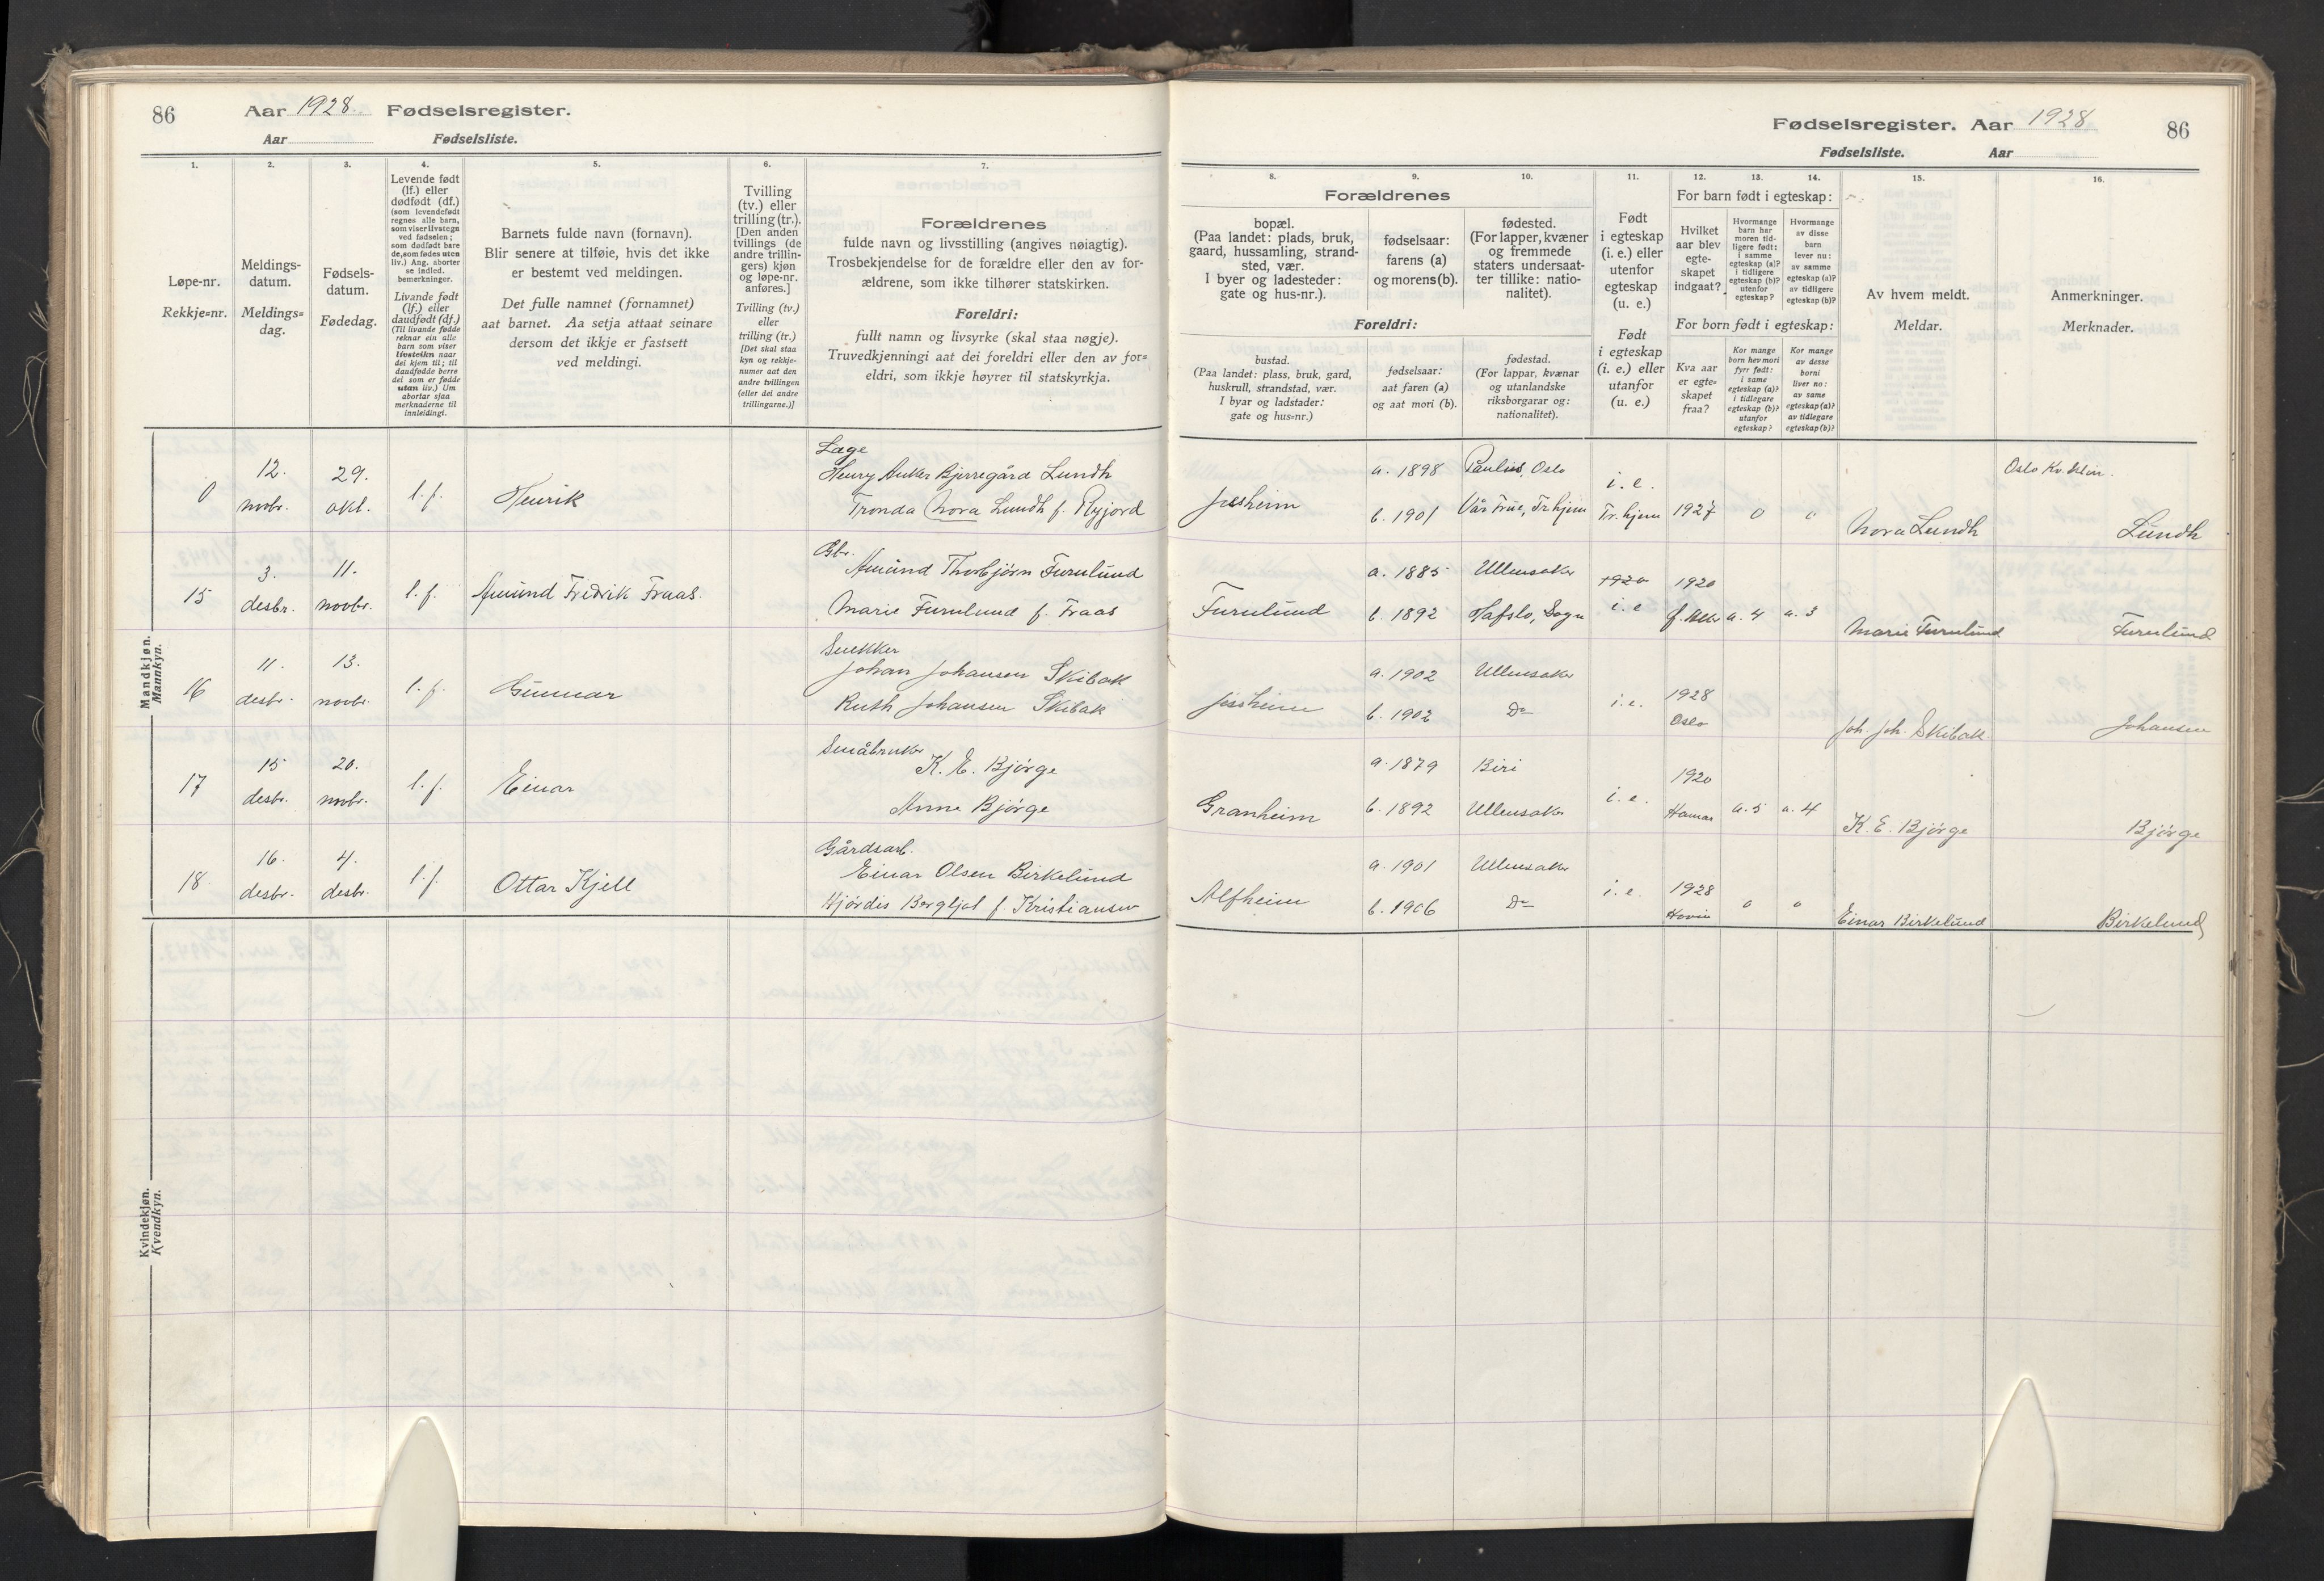 86
Aar 1928 Fødselsregister.
Aar Fødselsliste.
1.
2.
3.
4.
5.
6.
7.
Løpe-nr.
Rekkje=nr.
Meldings-
datum.
Meldings=
dag.
Fødsels-
datum.
Fødedag.
Levende født
(lf.) eller
dødfødt (df.)
(som levendefødt
regnes alle barn,
som viser livstegn
ved fødselen;
som dødfødt bare
de, som fødes uten
liv.) Ang. aborter
se indled.
bemerkninger.
Livande født
(lf.) eller
daudfødt (df.)
(Til livande fødde
reknar ein alle
barn som viser
livsteikn naar
dei kjem til; til
daudfødde berre
dei som er fødde
utan liv.) Um
abortar sjaa
merknaderne til
innleidingi.
Barnets fulde navn (fornavn).
Blir senere at tilføie, hvis det ikke
er bestemt ved meldingen.
Det fulle namnet (fornamnet)
aat barnet. Aa setja attaat seinare
dersom det ikkje er fastsett
ved meldingi.
Tvilling
(tv.) eller
trilling (tr.).
[Den anden
tvillings (de
andre trillin-
gers) kjøn
og løpe-nr.
anføres.]
Tvilling (tv.)
eller
trilling (tr.)
[Det skal staa
kyn og rekkje-
numer aat den
andre tvillingen
(eller dei andre
trillingarne.)]
Forældrenes
fulde navn og livsstilling (angives nøiagtig).
Trosbekjendelse for de forældre eller den av for-
ældrene, som ikke tilhører statskirken.
Foreldri:
fullt namn og livsyrke (skal staa nøgje).
Truvedkjenningi aat dei foreldri eller den av for=
eldri, som ikkje høyrer til statskyrkja.
Mandkjøn.
Mannkyn.
0
12.
novbr.
29.
okt.
l. f.
Henrik
Læge
Henry Anker Bjerregård Lundh
Tronda Nora Lundh f. Ryjord
15
3.
desbr.
11.
novbr.
l. f.
Amund Fredrik Fraas.
Gbr.
Amund Thorbjørn Furulund
Marie Furulund f. Fraas
16
11.
desbr.
13.
novbr.
l. f.
Gunnar
Snekker
Johan Johansen Skibak
Ruth Johansen Skibak
17
15
desbr.
20.
novbr.
l. f.
Einar
Småbruker
K. E. Bjørge
Anne Bjørge
18.
16.
desbr.
4.
desbr.
l. f.
Ottar Kjell
Gårdsarb.
Einar Olsen Birkelund
Hjørdis Bergljot f. Kristiansen
Kvindekjøn.
Kvendkyn.
Fødselsregister. Aar 1928
86
Fødselsliste. Aar
8.
9.
10.
11.
12.
13.
14.
15.
16.
Forældrenes
bopæl.
(Paa landet: plads, bruk,
gaard, hussamling, strand-
sted, vær.
I byer og ladesteder:
gate og hus-nr.).
fødselsaar:
farens (a)
og morens (b).
fødested.
(For lapper, kvæner
og fremmede
staters undersaat-
ter tillike: natio-
nalitet).
Foreldri:
bustad.
(Paa landet: plass, bruk, gard,
huskrull, strandstad, vær.
I byar og ladstader:
gate og hus=nr.)
fødselsaar:
aat faren (a)
og aat mori (b).
fødestad.
(For lappar, kvænar
og utanlandske
riksborgarar og:
nationalitet).
Født
i egteskap
(i. e.) eller
utenfor
egteskap
(u. e.)
Født
i egteskap
(i. e.) eller
utanfor
(u. e.)
For barn født i egteskap:
Hvilket
aar blev
egte-
skapet
indgaat?
Hvormange
barn har
moren tid-
ligere født:
i samme
egteskap (a)?
i tidligere
egteskap (b)?
utenfor
egteskap?
Hvormange
av disse
barn
lever nu:
av samme
egteskap (a)?
av tidligere
egteskap (b)?
For born født i egteskap:
Kva aar
er egte=
skapet
fraa?
Kor mange
born hev mori
fyrr født:
i same
egteskap (a)?
i tidlegare
egteskap (b)?
utanfor
egteskap?
Kor mange
av desse
borni
liver no:
av same
egteskap (a)?
av tidlegare
egteskap (b)?
Av hvem meldt.
Meldar.
Anmerkninger.
Merknader.
Jessheim
a. 1898
b. 1901
Paulus, Oslo
Vår Frue, Tr.hjem
i. e.
Tr. hjem
1927
0
0
Nora Lundh
Oslo Kv. klin.
Lundh
Furulund
a. 1885
b. 1892
Ullensaker
Hafslo, Sogn
1920
i. e
1920
a. 4
a. 3
Marie Furulund
Furulund
Jessheim
a. 1902
b. 1902
Ullensaker
Do
i. e.
1928
Oslo
Joh. Joh. Skibak
Johansen
Granheim
a. 1879
b. 1892
Biri
Ullensaker
i. e.
1920
Hamar
a. 5
a. 4
K. E. Bjørge
Bjørge
Alfheim
a. 1901
b. 1906
Ullensaker
Do
i. e.
1928
Hovin
0
0
Einar Birkelund
Birkelund